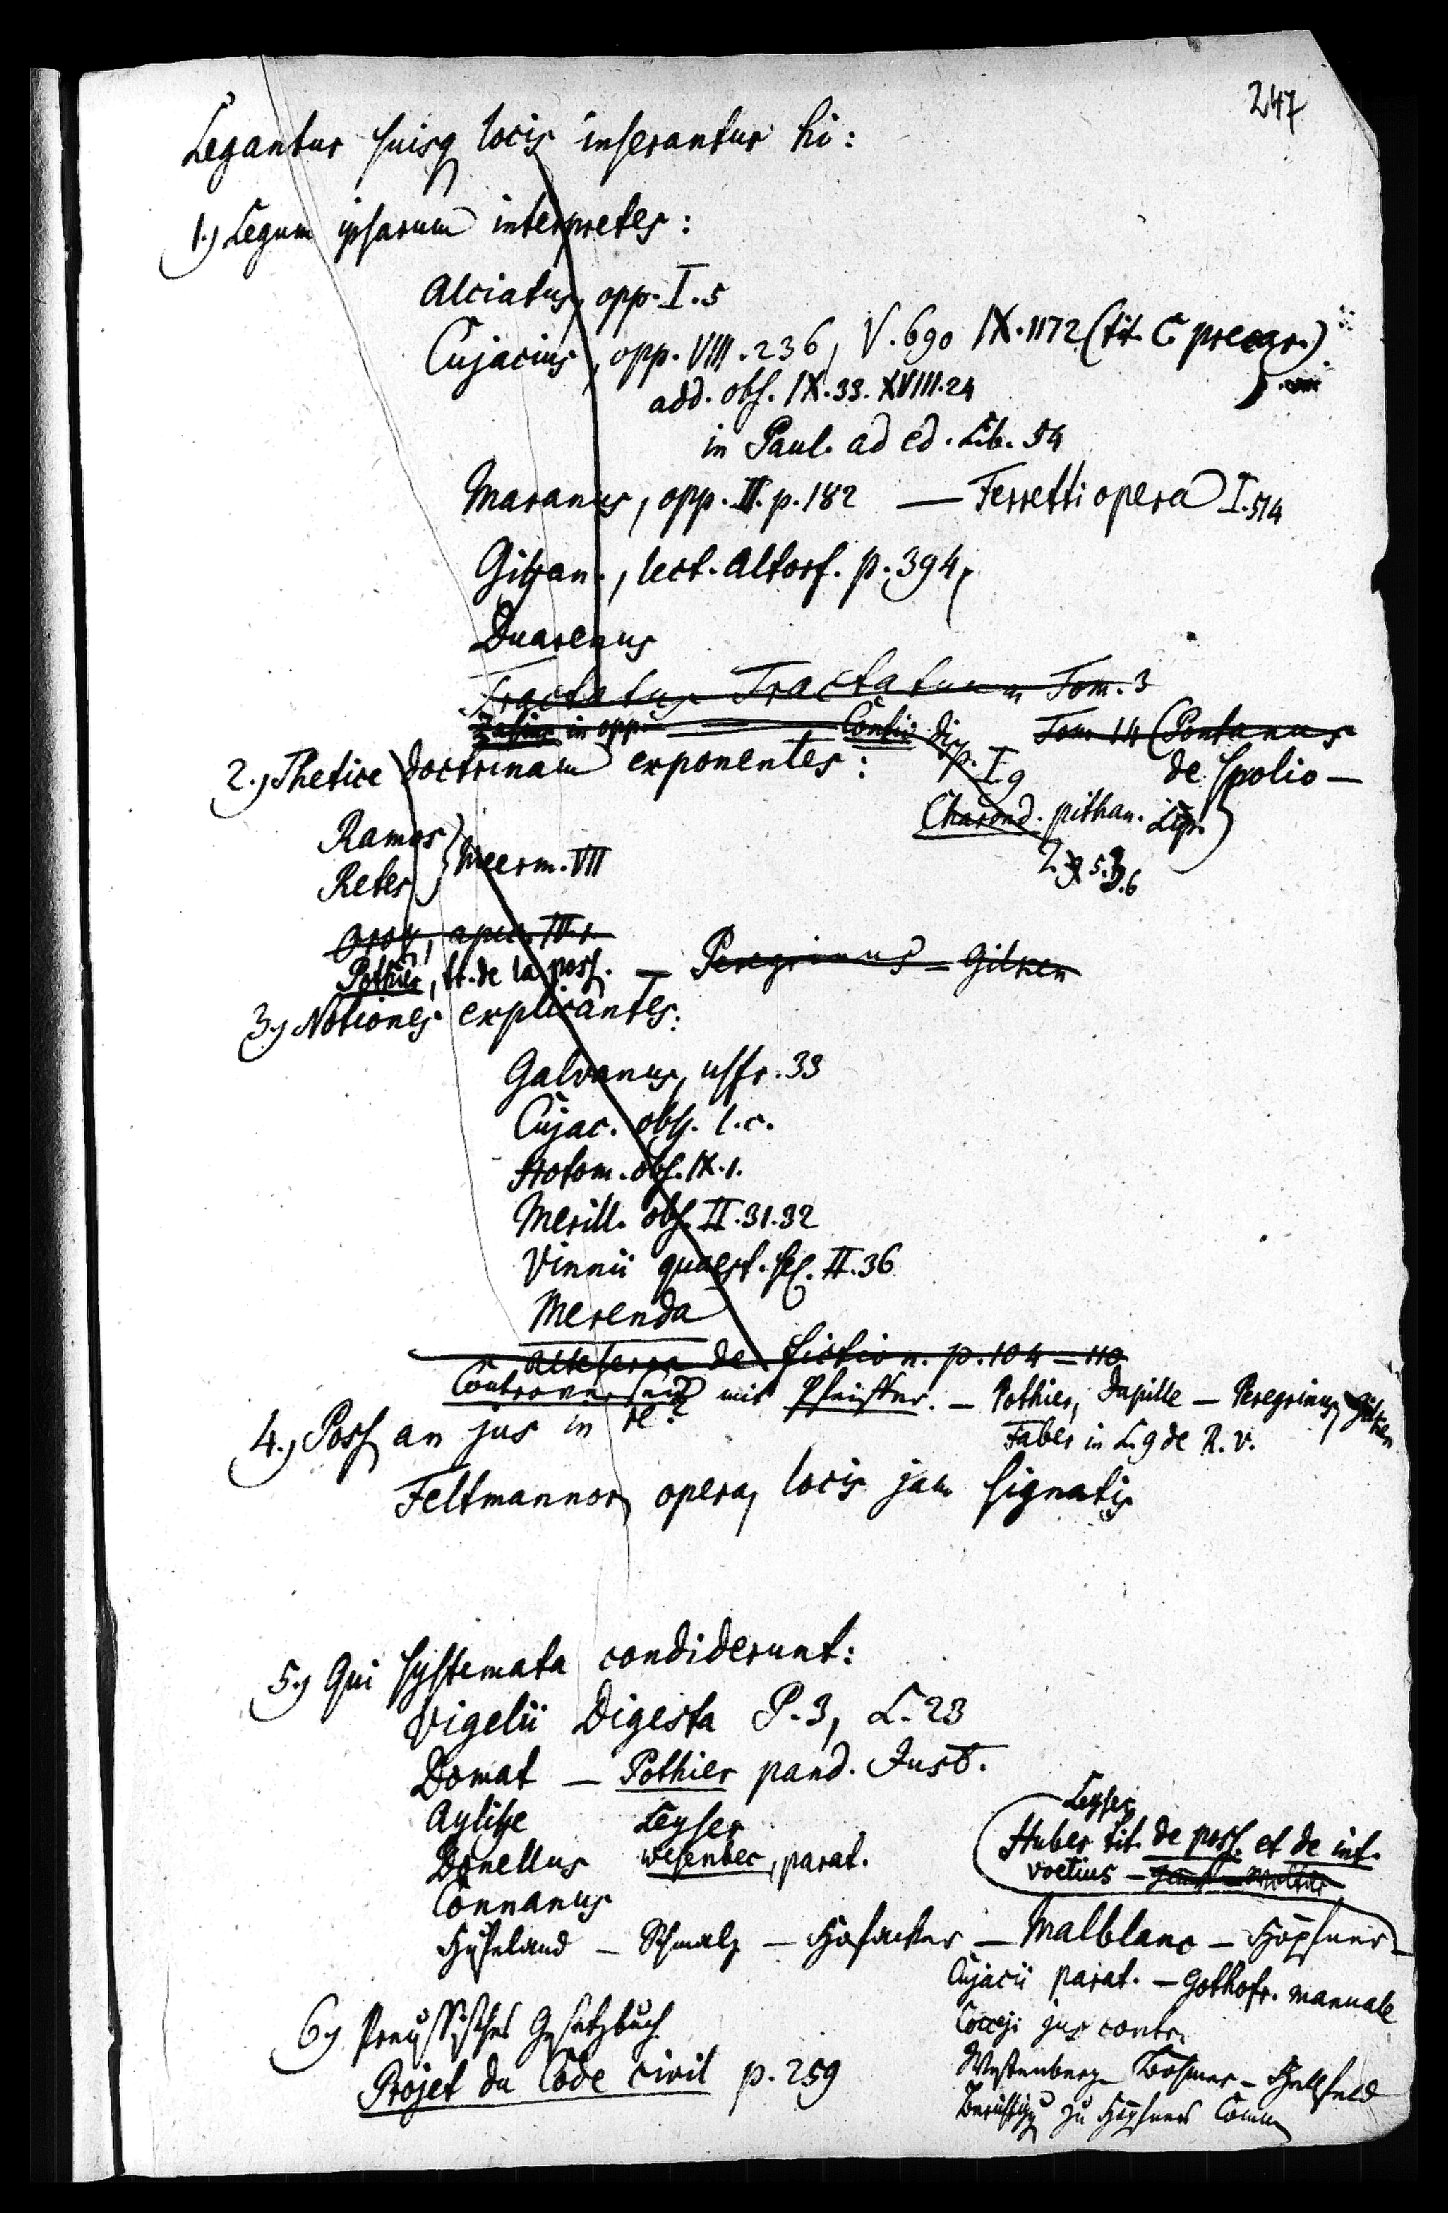 247
Legantur suisq locis inserantur hi:
1.) Legum ipsarum interpretes:
Alciatus, opp. I. 5
Cujacius, opp. VIII. 236, V. 690 IX. 1172 (tit. C. precar.)
add. obs. IX. 33. XVIII. 24
in Paul. ad ed. Lib. 54
Maranus, opp. II. p. 182 — Ferretti opera I. 514
Giphan., lect. Altorf. p. 394,
Duarenus
Tractatus Tractatuum Tom. 3
Zasius in opp. — Contii disp. I. 9 Tom. 14 (Pontanus
de spolio —
2.) Thetice doctrinam exponentes:
Charond. pithan. Lips.)
Ramos
Retes } Meerm. VII
Pothier, tr. de la poss. — Peregrinus — Gilken
3.) Notiones explicantes:
Galvanus, usfr. 33
Cujac. obss. l. c.
Hotom. obs. IX. 1.
Merill. obs. II. 31. 32
Vinnii quaest. sel. II. 36
Merenda
Alteserra de fiction. p. 104 — 110
Controvers mit Pfeiffer. — Pothier, Dupille — Peregrinus, Gilken
Faber in L. 9 de R. v.
4.) Poss an jus in re?
Feltmannor opera, locis jam signatis
5.) Qui systemata condiderunt:
Vigelii Digesta P. 3, L. 23
Domat — Pothier pand. Just.
Ayliffe Leyser
Donellus Wesenbec, parat.
Connanus
Leyser
Huber tit. de poss. et de int.
Voetius —
Hufeland — Schmalz — Hofacker — Malblanc — Höpfner —
Cujacii parat. — Gothofr. manuale
Cocceji jus contr.
Westenberg — Böhmer — Hellfeld
zu Höpfners Comm
6.) Preussisches Gesetzbuch
Projet du Code civil p. 259